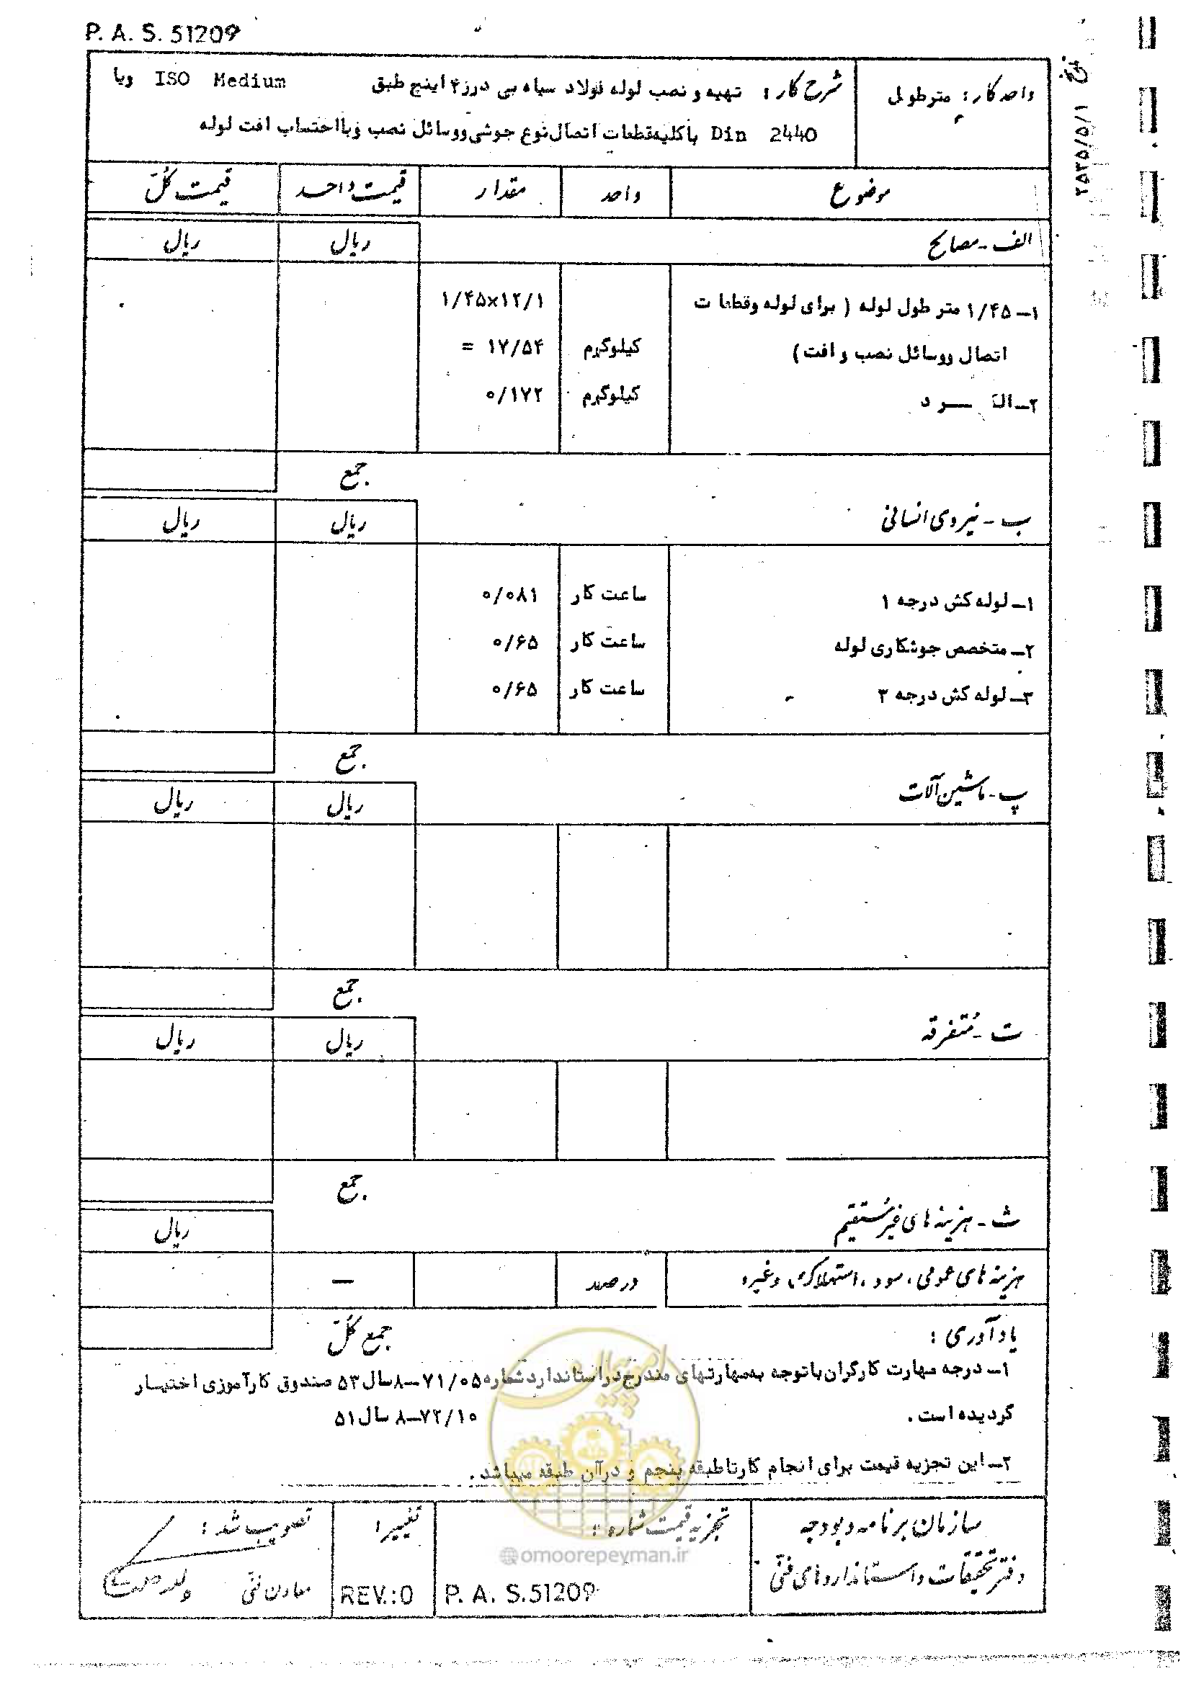 P. A. S. 51209
تاریخ ۲۵۳۵/۵/۱
واحد کار : متر طول
شرح کار : تهیه و نصب لوله فولاد سیاه بی درز ۴ اینچ طبق ISO Medium ویا
Din 2440 باکلیه قطعات اتصال نوع جوشی ووسائل نصب وبااحتساب افت لوله
موضوع واحد مقدار قیمت واحد قیمت کل
الف - مصالح ریال ریال
۱ـ ۱/۴۵ متر طول لوله ( برای لوله وقطعات ۱/۴۵×۱۲/۱
اتصال ووسائل نصب و افت ) کیلوگرم = ۱۷/۵۴
۲ـ الکترود کیلوگرم ۰/۱۷۲
جمع
ب - نیروی انسانی ریال ریال
۱ـ لوله کش درجه ۱ ساعت کار ۰/۰۸۱
۲ـ متخصص جوشکاری لوله ساعت کار ۰/۶۵
۳ـ لوله کش درجه ۳ ساعت کار ۰/۶۵
جمع
پ - ماشین آلات ریال ریال
جمع
ت - متفرقه ریال ریال
جمع
ث - هزینه های غیرمستقیم ریال
هزینه های عمومی ، سود ، استهلاک و غیره درصد —
جمع کل
یادآوری :
۱ـ درجه مهارت کارگران باتوجه به مهارتهای مندرج در استاندارد شماره ۷۱/۰۵ـ۸ سال ۵۳ صندوق کارآموزی اختیار
گردیده است . ۷۲/۱۰ـ۸ سال ۵۱
۲ـ این تجزیه قیمت برای انجام کار تا طبقه پنجم و در آن طبقه میباشد .
امور پیمان
@omoorepeyman.ir
سازمان برنامه و بودجه
دفتر تحقیقات و استانداردهای فنی
تجزیه قیمت شماره :
P. A. S.51209
تغییر :
REV.:0
تصویب شد :
معاون فنی